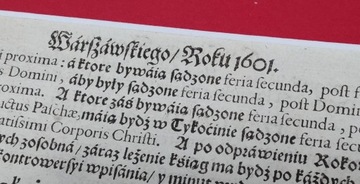 Wárszáwskiego/ Roku 1601.
proxima: á ktore bywáią sądzone feria secunda, post f
s Domini, áby były sądzone feria secunda, post Domini
roxima. A ktore záś bywáią sądzone feria secunda, p
uctus Paschæ, máią bydź w Tykoćinie sądzone feria secun
atissimi Corporis Christi. A po odpráwieniu Roko
ych zosobná/ záraz leżenie kśiąg ma bydź po káżdych
kontrowersyi wpisánia/ y minut